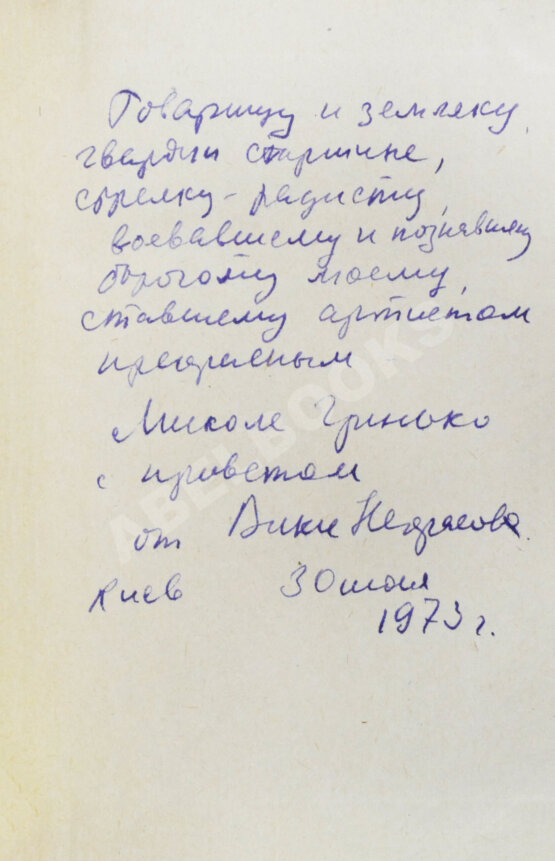 Товарищу и земляку,
гвардии старшине,
стрелку-радисту,
воевавшему и познавшему
дорогому моему,
ставшему артистом
прекрасным
Миколе Гринько
с приветом
от Вики Некрасова.
Киев 30 мая
1973 г.
ABELBOOKS